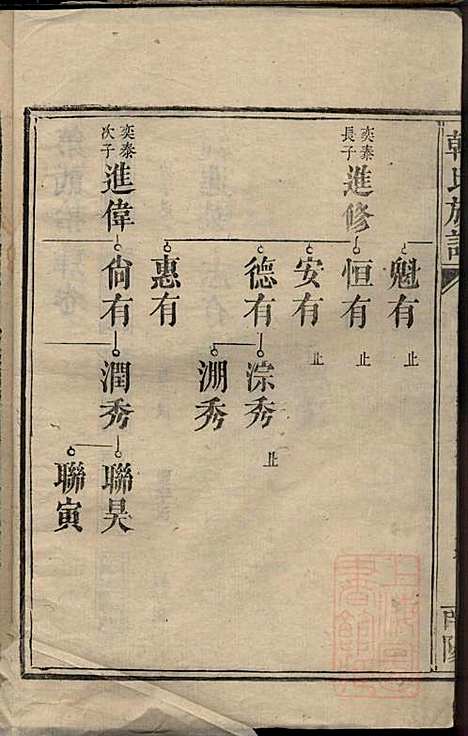 韓氏族譜
奕泰
長子
進修
魁有
止
恒有
止
安有
止
德有
淙秀
止
淜秀
惠有
奕泰
次子
進偉
尙有
潤秀
聯昊
聯寅